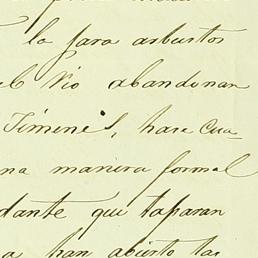 la para asbustos
el rio abandonan
Jimenes, hase cua-
na manera formal
dante que taparan
a han abierto las